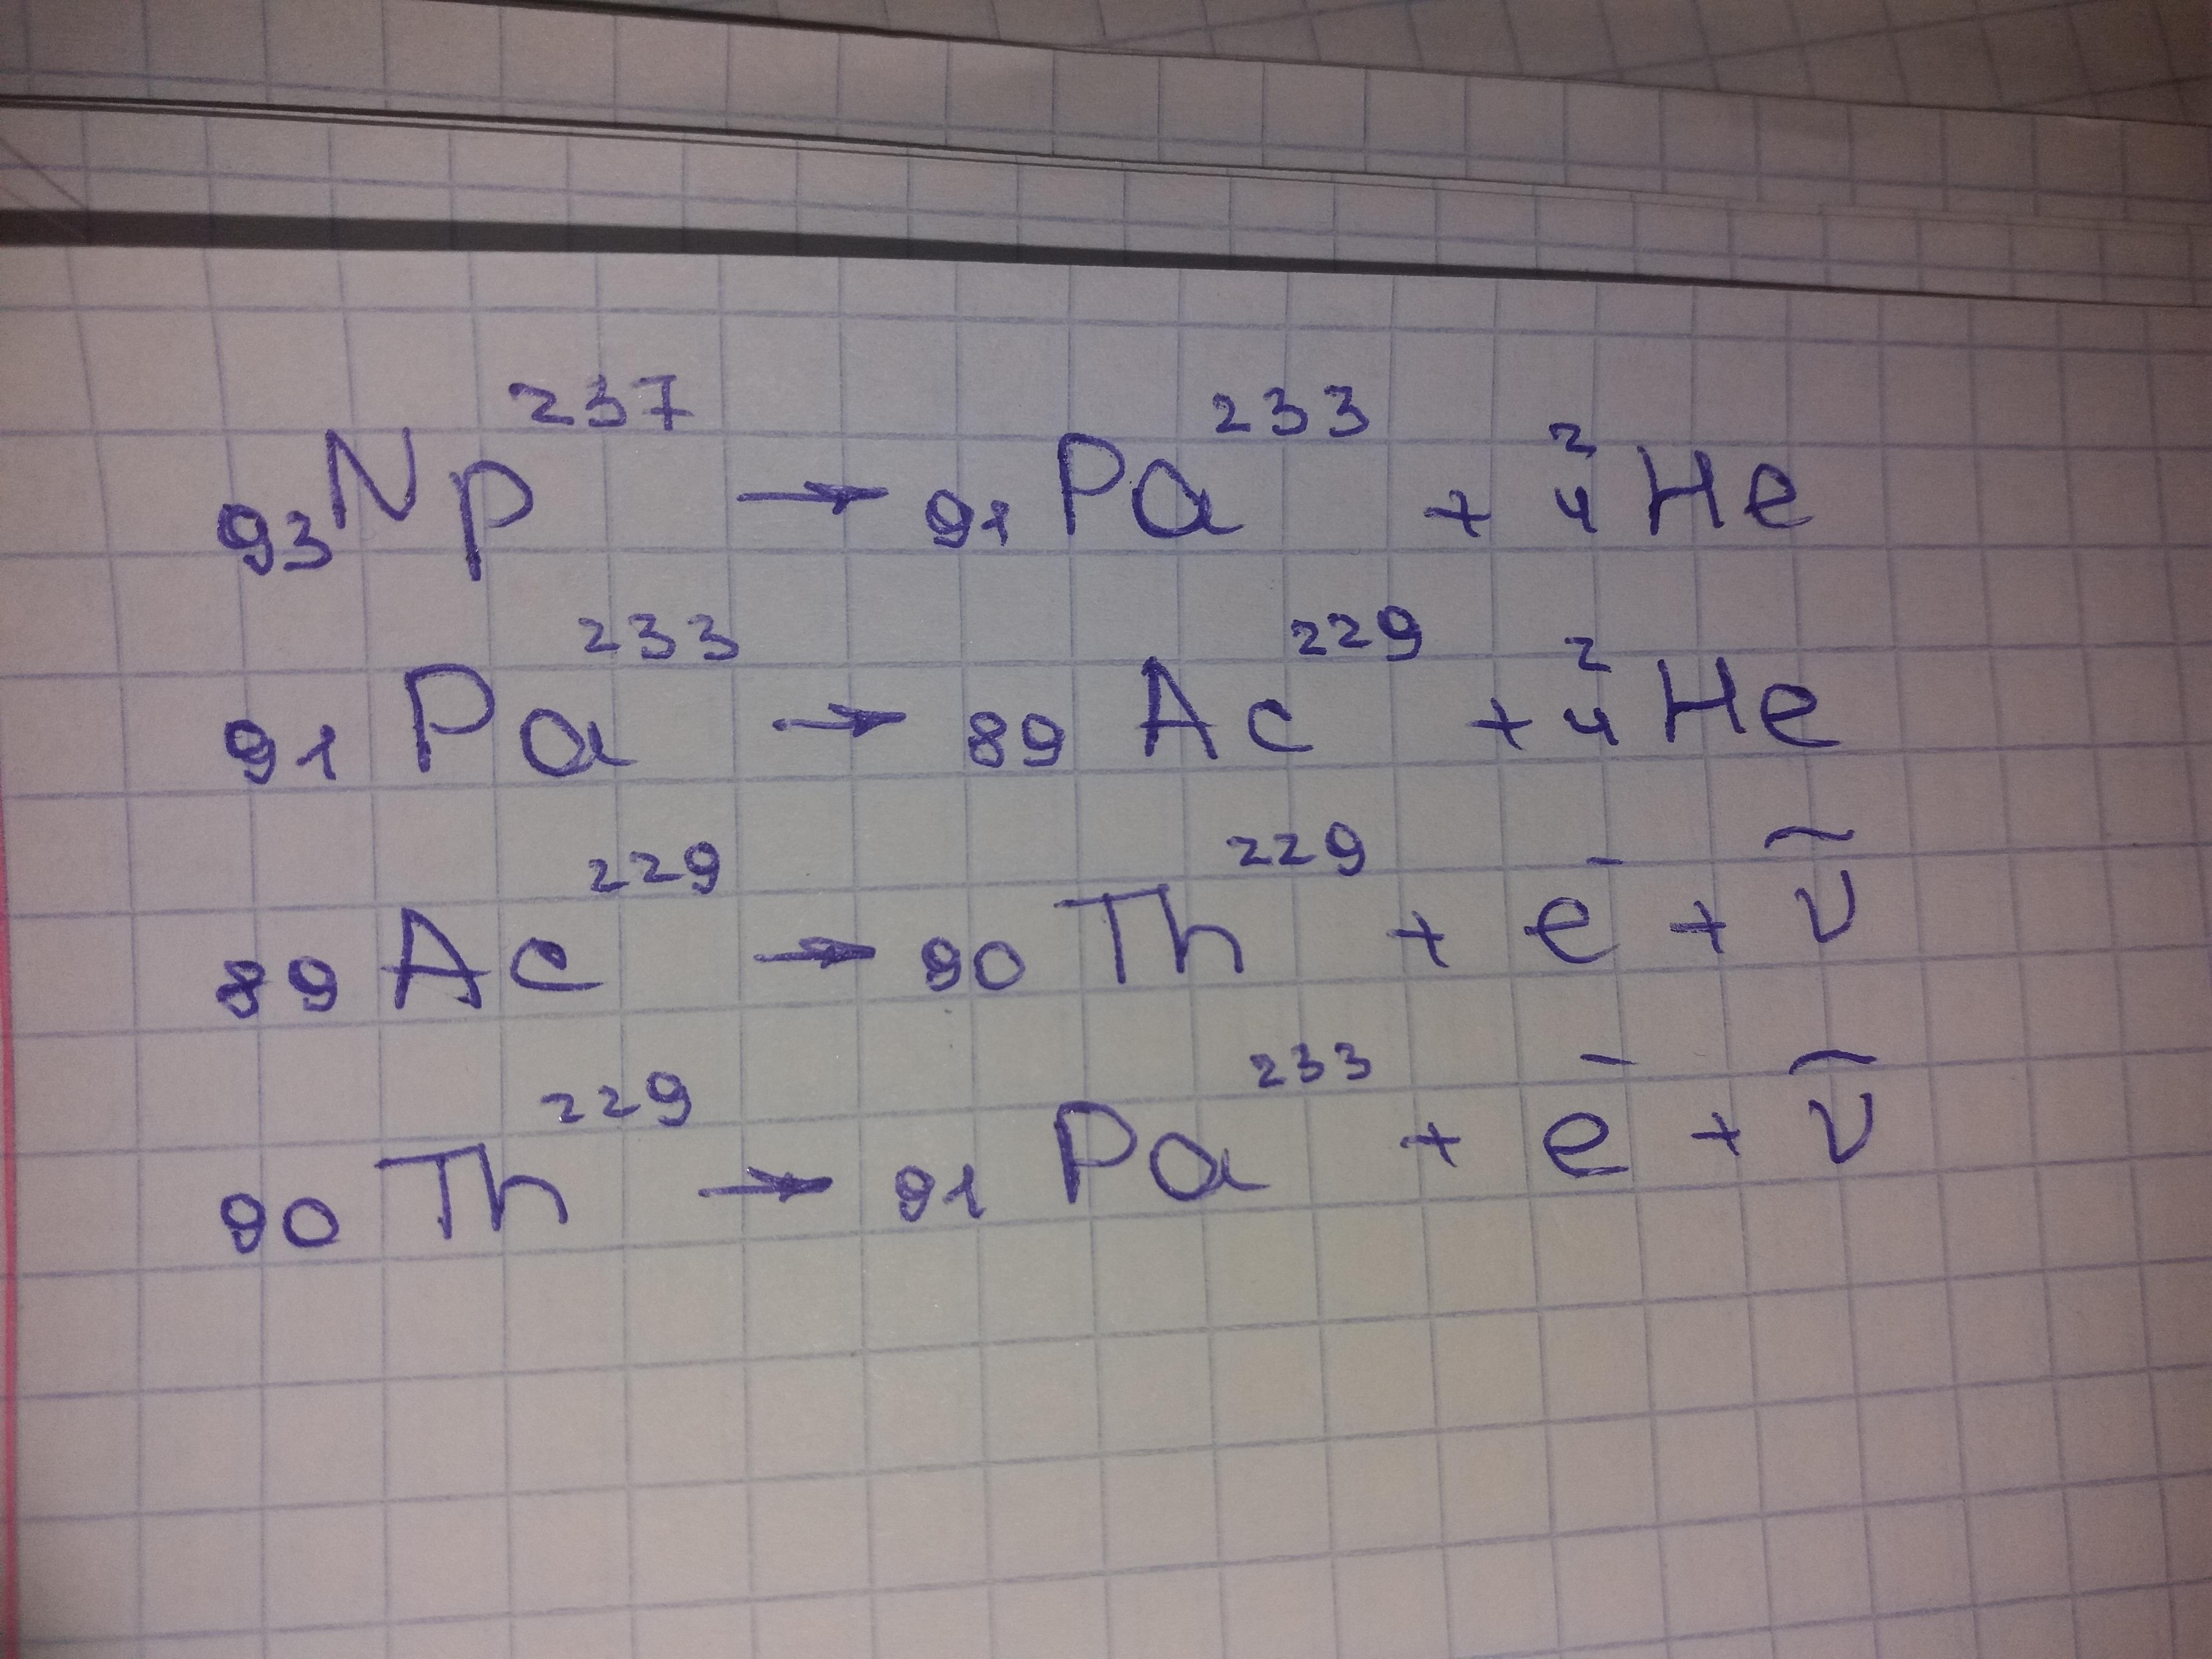 ₉₃Np²³⁷ → ₉₁Pa²³³ + ²₄He
₉₁Pa²³³ → ₈₉Ac²²⁹ + ²₄He
₈₉Ac²²⁹ → ₉₀Th²²⁹ + e⁻ + ν̃
₉₀Th²²⁹ → ₉₁Pa²³³ + e⁻ + ν̃